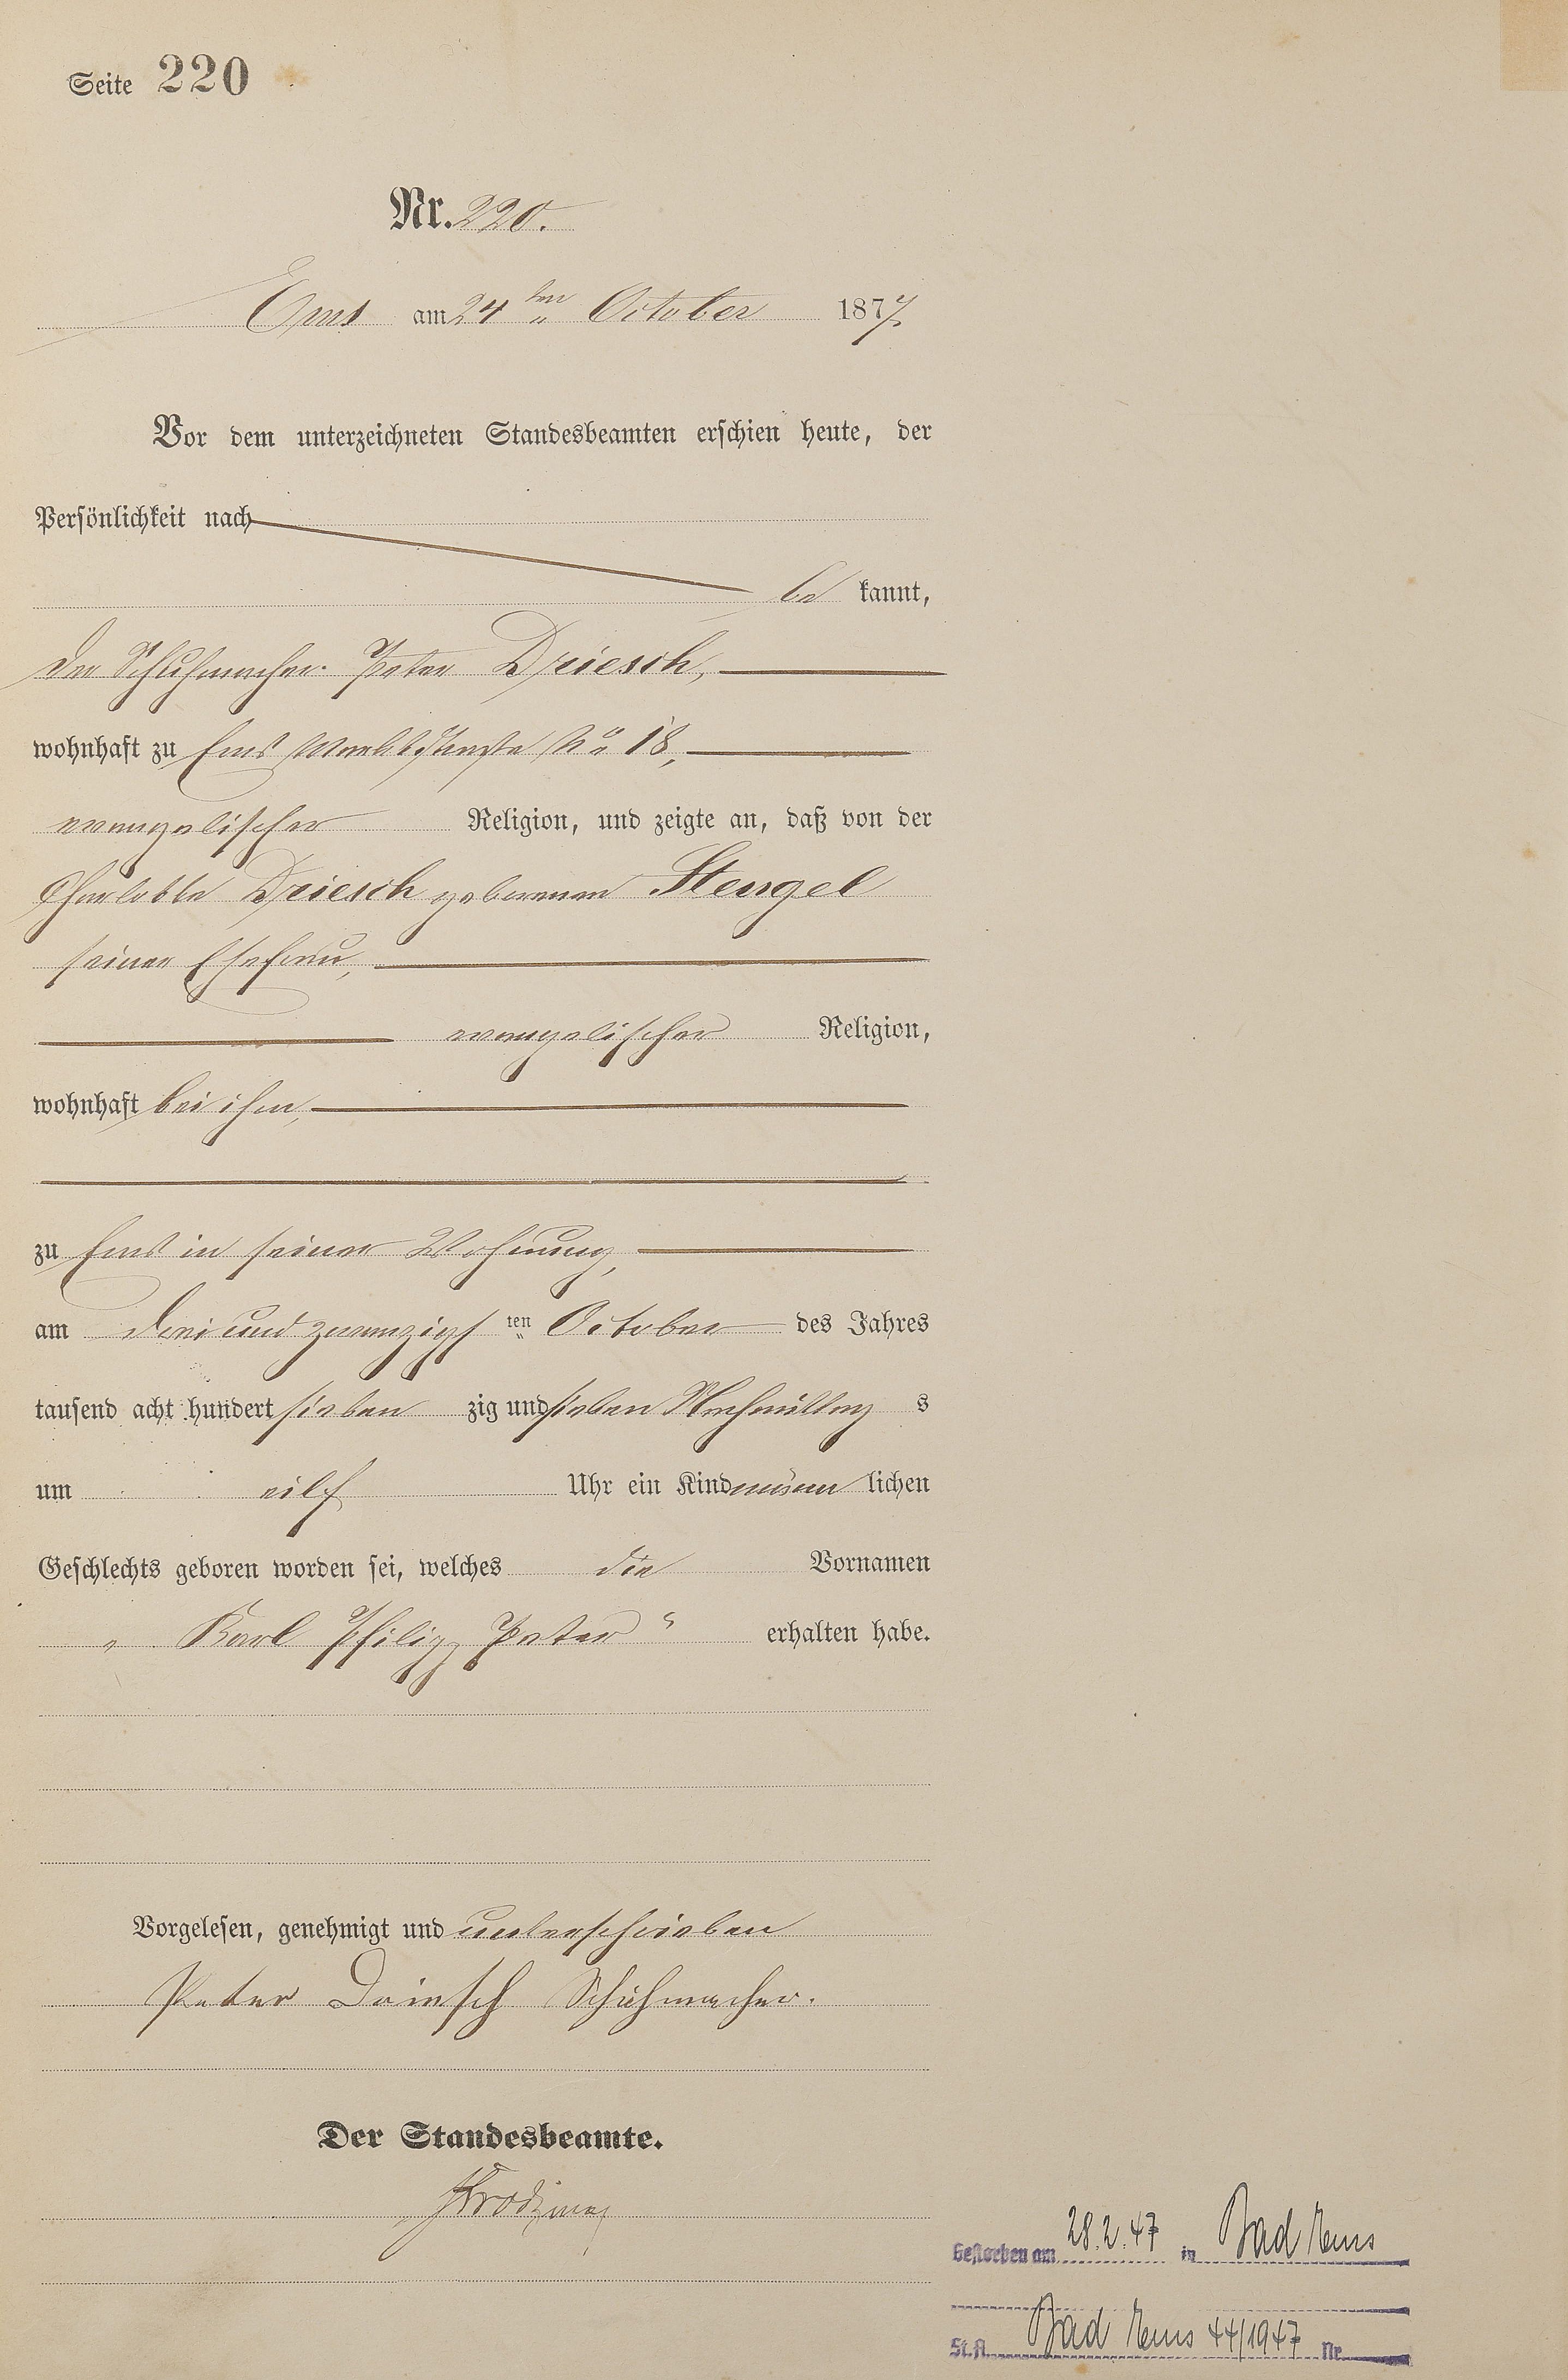 Seite 220
Nr. 220.
Ems am 24ten October 1877.
Vor dem unterzeichneten Standesbeamten erschien heute, der
Persönlichkeit nach
be kannt,
der Schuhmacher Peter Driesch,
wohnhaft zu Ems No 18,
evangelischer Religion, und zeigte an, daß von der
Charlotte Driesch geborenen Stengel
seiner Ehefrau,
evangelischer Religion,
wohnhaft bei ihm,
zu Ems in seiner Wohnung,
am drei und zwanzigsten October des Jahres
tausend acht hundert sieben zig und sieben Nachmittag s
um eilf Uhr ein Kind männ lichen
Geschlechts geboren worden sei, welches die Vornamen
„Karl Philipp Peter“ erhalten habe.
Vorgelesen, genehmigt und unterschrieben
Peter Driesch Schuhmacher.
Der Standesbeamte.
Gestorben am 28.2.47 in Bad Ems
St.A. Bad Ems 44/1947 Nr.